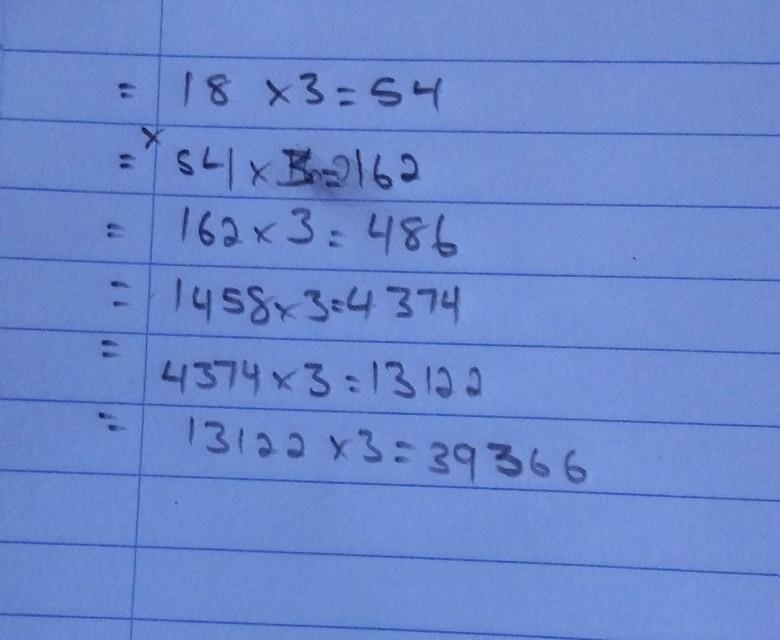 = 18 ×3=54
=× 54×3=162
= 162×3= 486
= 1458×3=4374
= 4374×3=13122
= 13122×3=39366